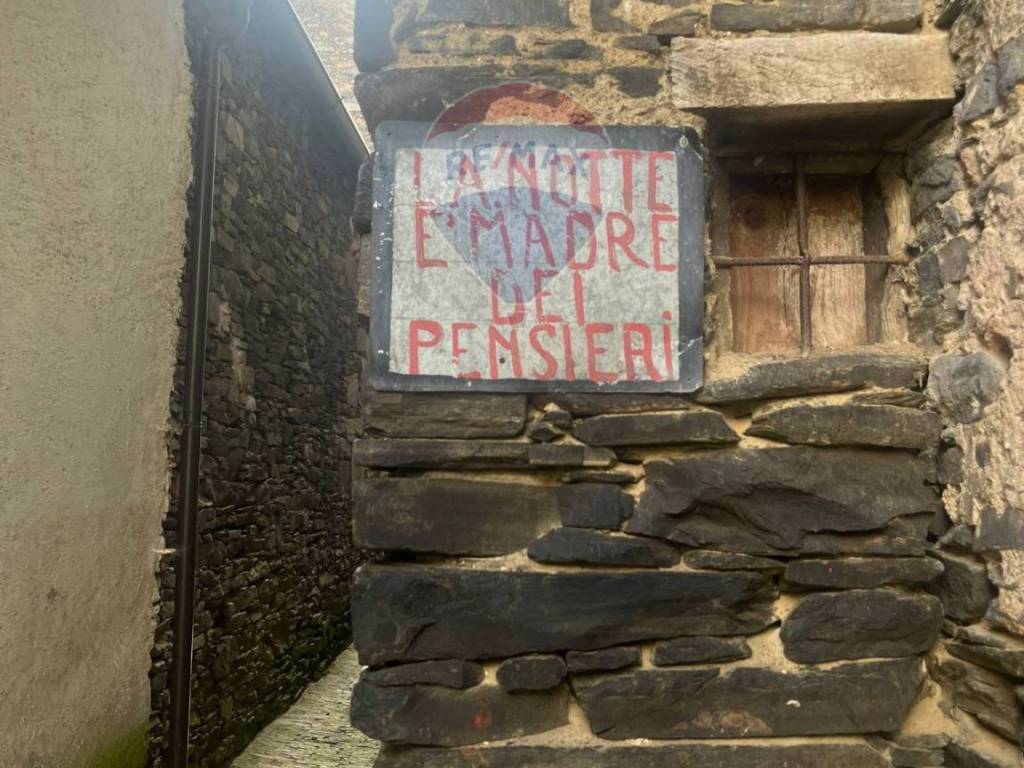 RE/MAX
LA NOTTE
E' MADRE
DEI
PENSIERI